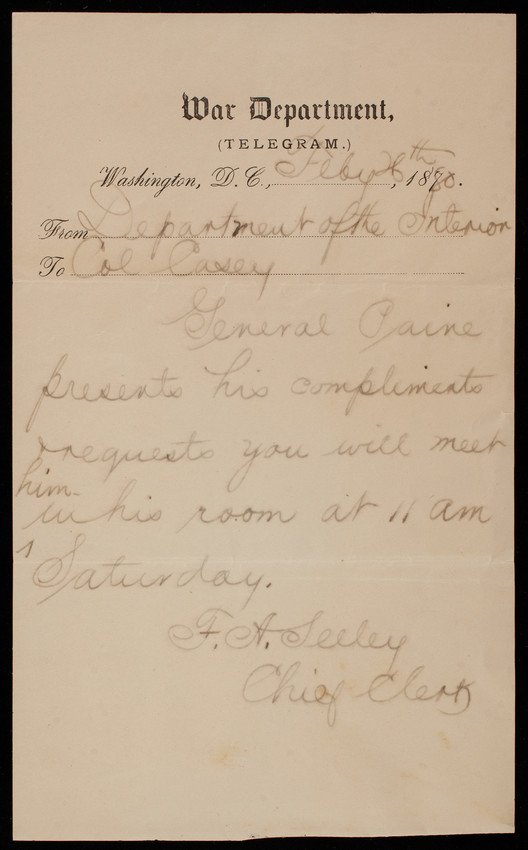 War Department,
(TELEGRAM.)
Washington, D.C., Feby 26th, 1880.
From Department of the Interior
To Col Casey
General Paine
presents his compliments
& requests you will meet
him
in his room at 11 am
Saturday.
F. A. Seeley
Chief Clerk